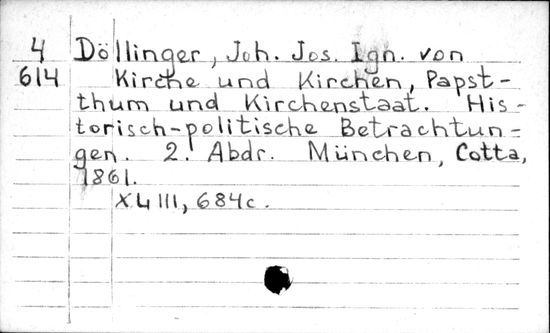 4 Döllinger, Joh. Jos. Ign. von
614 Kirche und Kirchen, Papst-
thum und Kirchenstaat. His-
torisch-politische Betrachtun=
gen. 2. Abdr. München, Cotta,
1861.
XLIII, 684c.